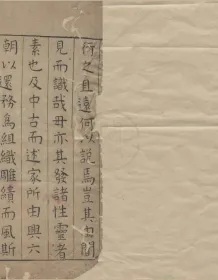 之直遠何以說焉豈其
見而識哉毋亦其發諸性靈者
素也及中古而述家所由興六
朝以還務爲組織雕繢而風斯